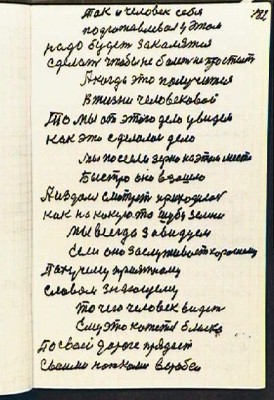 Так и человек себя
подготавливая у этом
надо будет закалятся
сделать чтобы не болеть и простыть
А когда это получится
В жизни человековой
То мы от этого дело увидем
как это сделалось дело
Мы посеели зерно на этом месте
Быстро оно взошло
А издали смотрит
как на какую то шубу земли
Мы всегда завидуем
Если оно заслуживает хорошему
Такучему приятному
словам знающему
То чего человек видит
Ему это кажется близко
По своей дороге прядает
Своими ногами воробей